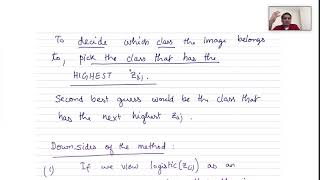 To decide which class the image belongs
to, pick the class that has the
HIGHEST Z(j).
Second best guess would be the class that
has the next highest Z(j)
Downsides of the method :
(1) If we view logistic(Z(j)) as an